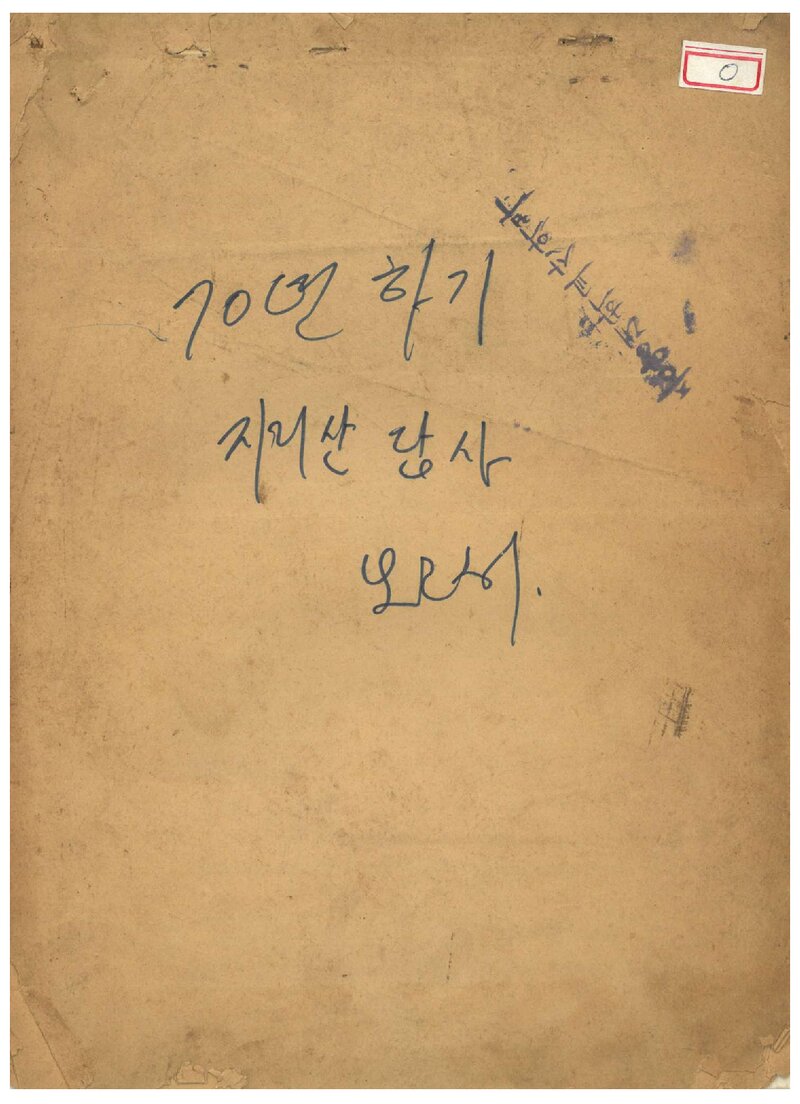 0
70년 하기
지리산 답사
보고서.